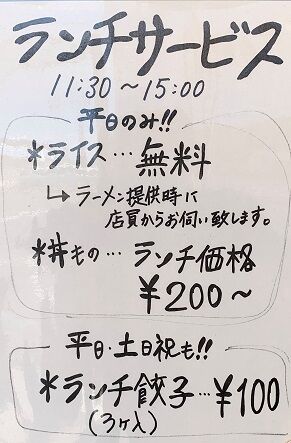 ランチサービス
11:30～15:00
平日のみ!!
*ライス…無料
↳ラーメン提供時に
店員からお伺い致します。
*丼もの…ランチ価格
¥200～
平日・土日祝も!!
*ランチ餃子…¥100
(3ヶ入)